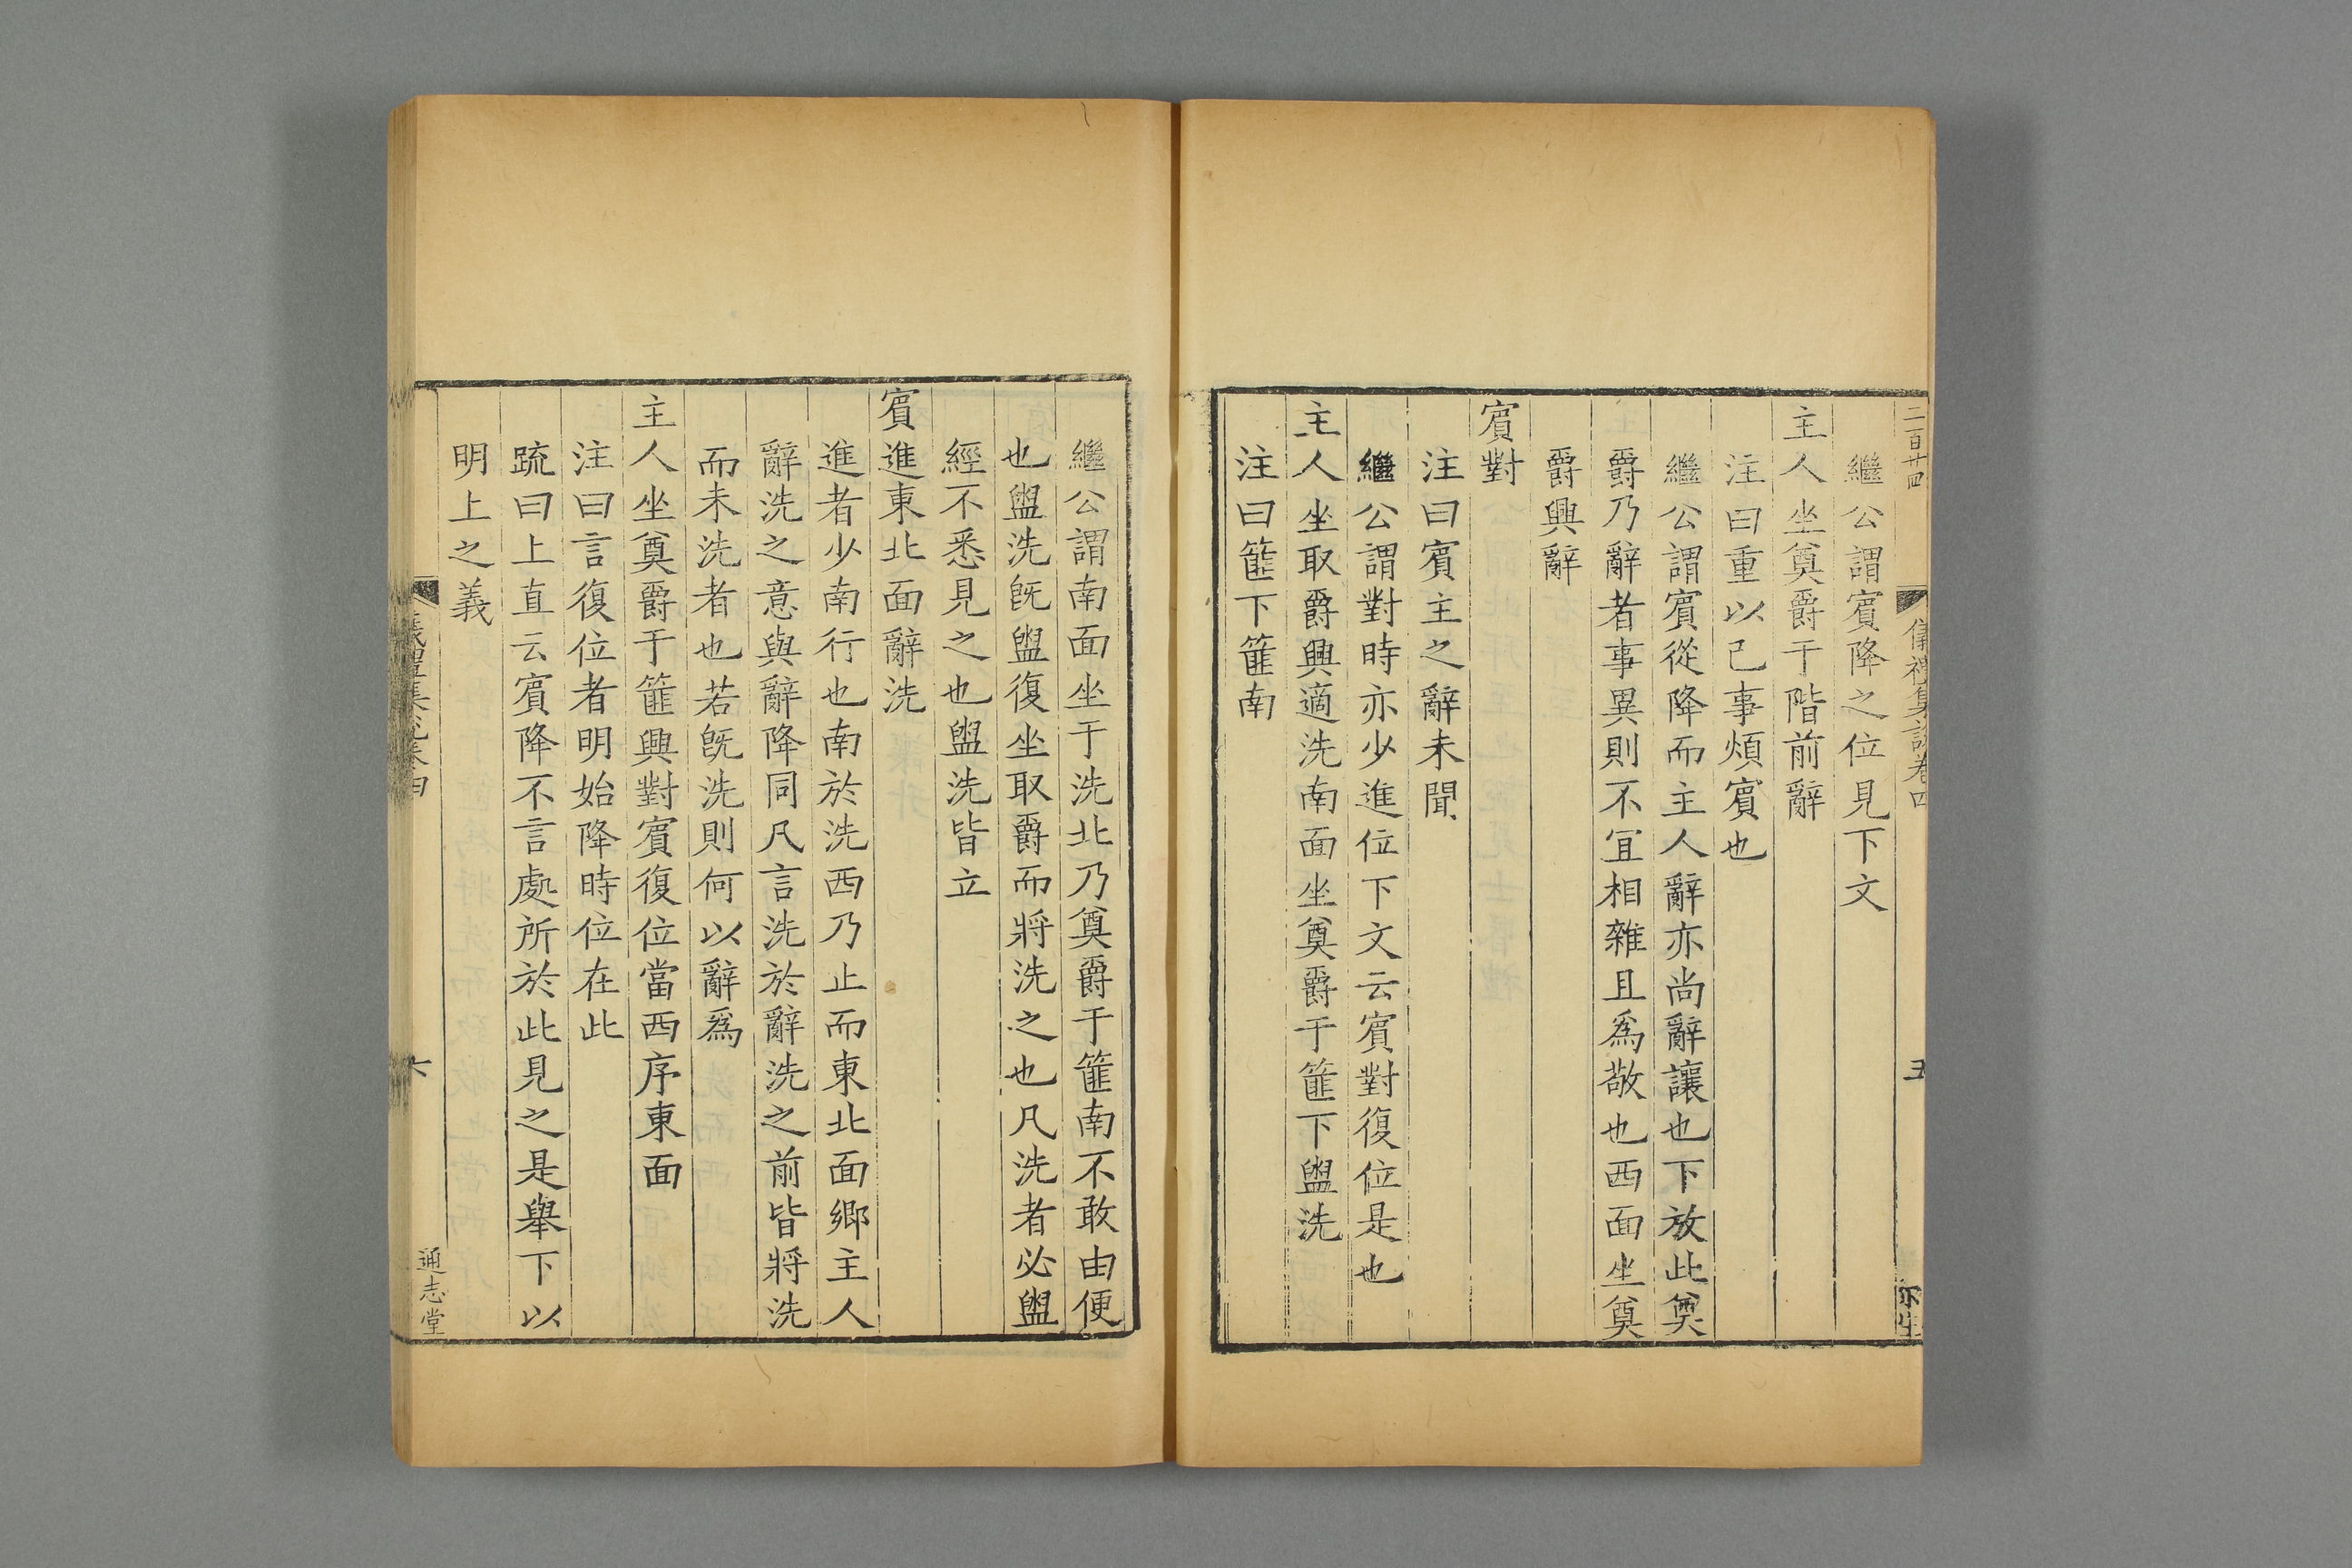 二百廿四
儀禮集說卷四
五
繼公謂賔降之位見下文
主人坐奠爵于階前辭
注曰重以己事煩賔也
繼公謂賔從降而主人辭亦尚辭讓也下放此奠
爵乃辭者事異則不冝相雜且爲敬也西面坐奠
爵興辭
賔對
注曰賔主之辭未聞
繼公謂對時亦少進位下文云賔對復位是也
主人坐取爵興適洗南面坐奠爵于篚下盥洗
注曰篚下篚南
繼公謂南面坐于洗北乃奠爵于篚南不敢由便
也盥洗旣盥復坐取爵而將洗之也凡洗者必盥
經不悉見之也盥洗皆立
賔進東北面辭洗
進者少南行也南於洗西乃止而東北面鄉主人
辭洗之意與辭降同凡言洗於辭洗之前皆將洗
而未洗者也若旣洗則何以辭爲
主人坐奠爵于篚興對賔復位當西序東面
注曰言復位者明始降時位在此
疏曰上直云賔降不言處所於此見之是舉下以
明上之義
六
通志堂